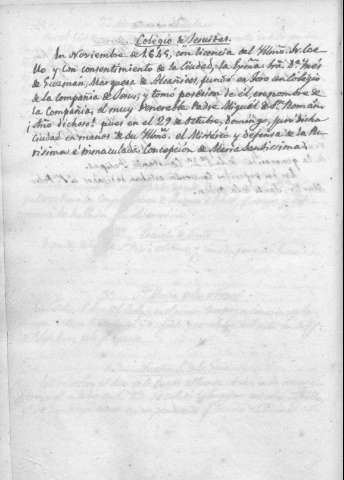 Colegio de Jesuitas.
En Noviembre de 1645, con licencia del Illmo. Sr. Coe-
llo y con consentimiento de la Ciudad, la Exma. Sra. Dª. Inés
de Guzmán, Marquesa de Alcañices, fundó en Toro un Colegio
de la compañía de Jesus, y tomó posesion de él, en nombre de
la Compañía, el muy Venerable Padre Miguel de Sn. Román.
¡Año dichoso! pues en el 29 de octubre, Domingo, juró dicha
Ciudad en manos de su Illmo. el Misterio y defensa de la Pu-
rísima é inmaculada Concepcion de María Santísima.